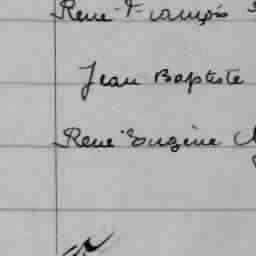 René François
Jean Baptiste
René Eugène